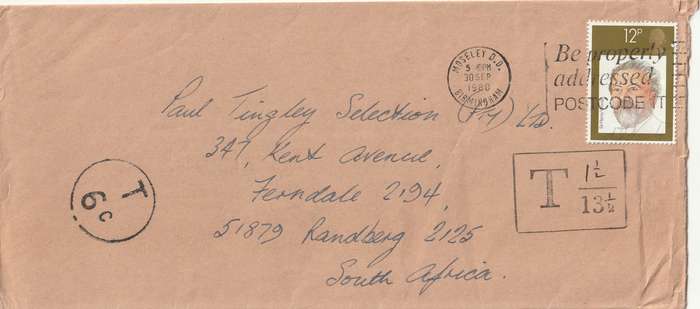 MOSELEY D.O.
5 PM
30 SEP
1980
BIRMINGHAM
Be properly
addressed
POSTCODE IT
12P
Paul Tingley Selection (Pty) Ltd.
347, Kent Avenue,
Ferndale 2194,
51879 Randberg 2125
South Africa.
T
6c
T 1½
13½